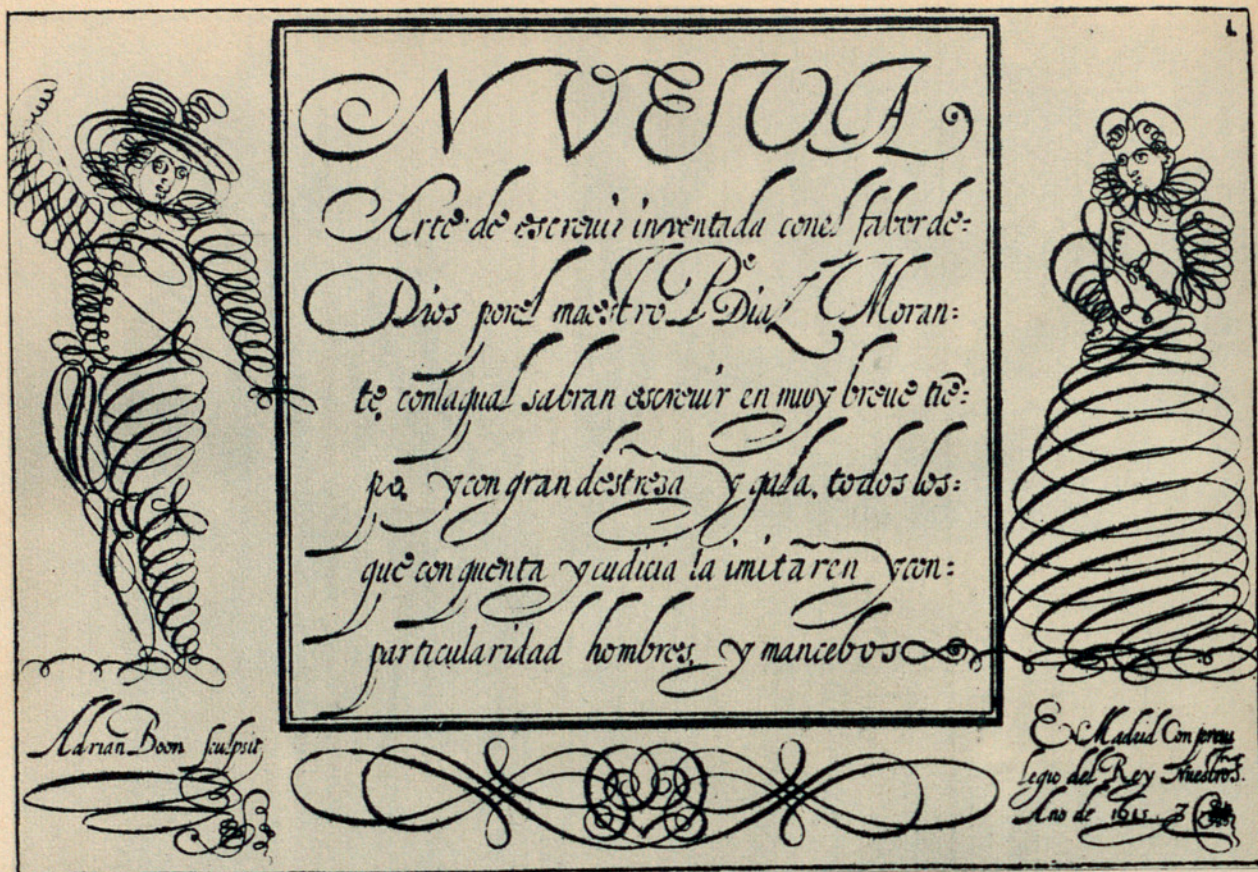 NUEUA
Arte de escreuir inventada conel fabor de:
Dios porel maestro Pe Diaz Moran:
te, conlaqual sabran escreuir en muy breue tiẽ:
po, y con gran destreza y gala, todos los:
que con quenta y cudicia la imitãren y con:
particularidad hombres, y mancebos
Adrian Boon sculpsit
En Madrid Con preui
legio del Rey Nuestro S.
Ano de 1615.